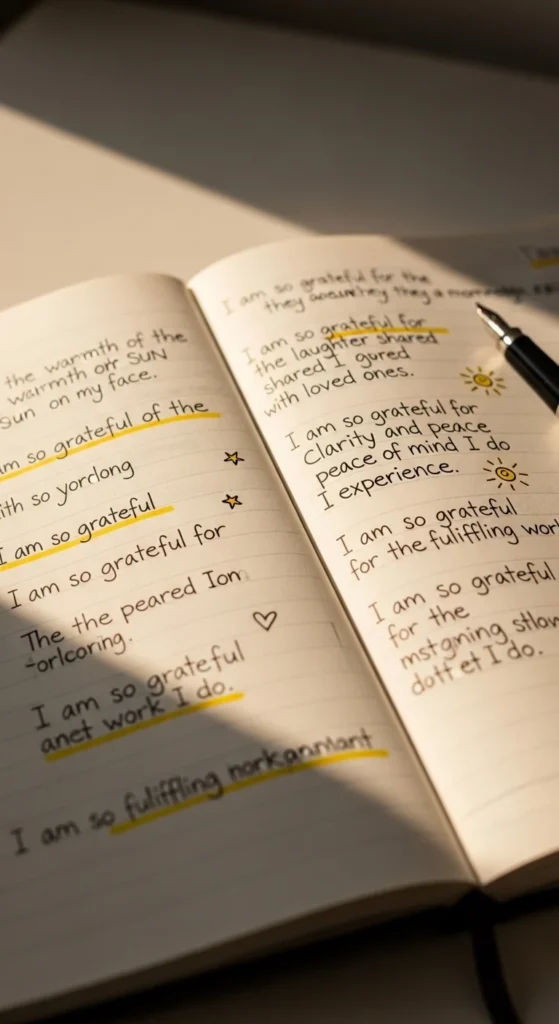 the warmth of the
warmth off SUN
sun on my face.
am so grateful of the
ith so yordong
I am so grateful
I am so grateful for
The the peared Ion
-orlcoring.
I am so grateful
anet work I do.
I am so fuliffling norkanmant
I am so grateful for the
they they they a
I am so grateful for
the laughter shared
shared I gured
with loved ones.
I am so grateful for
Clarity and peace
peace of mind I do
I experience.
I am so grateful
for the fuliffling wor
I am so grateful
for the
mstgining stlow
dott et I do.